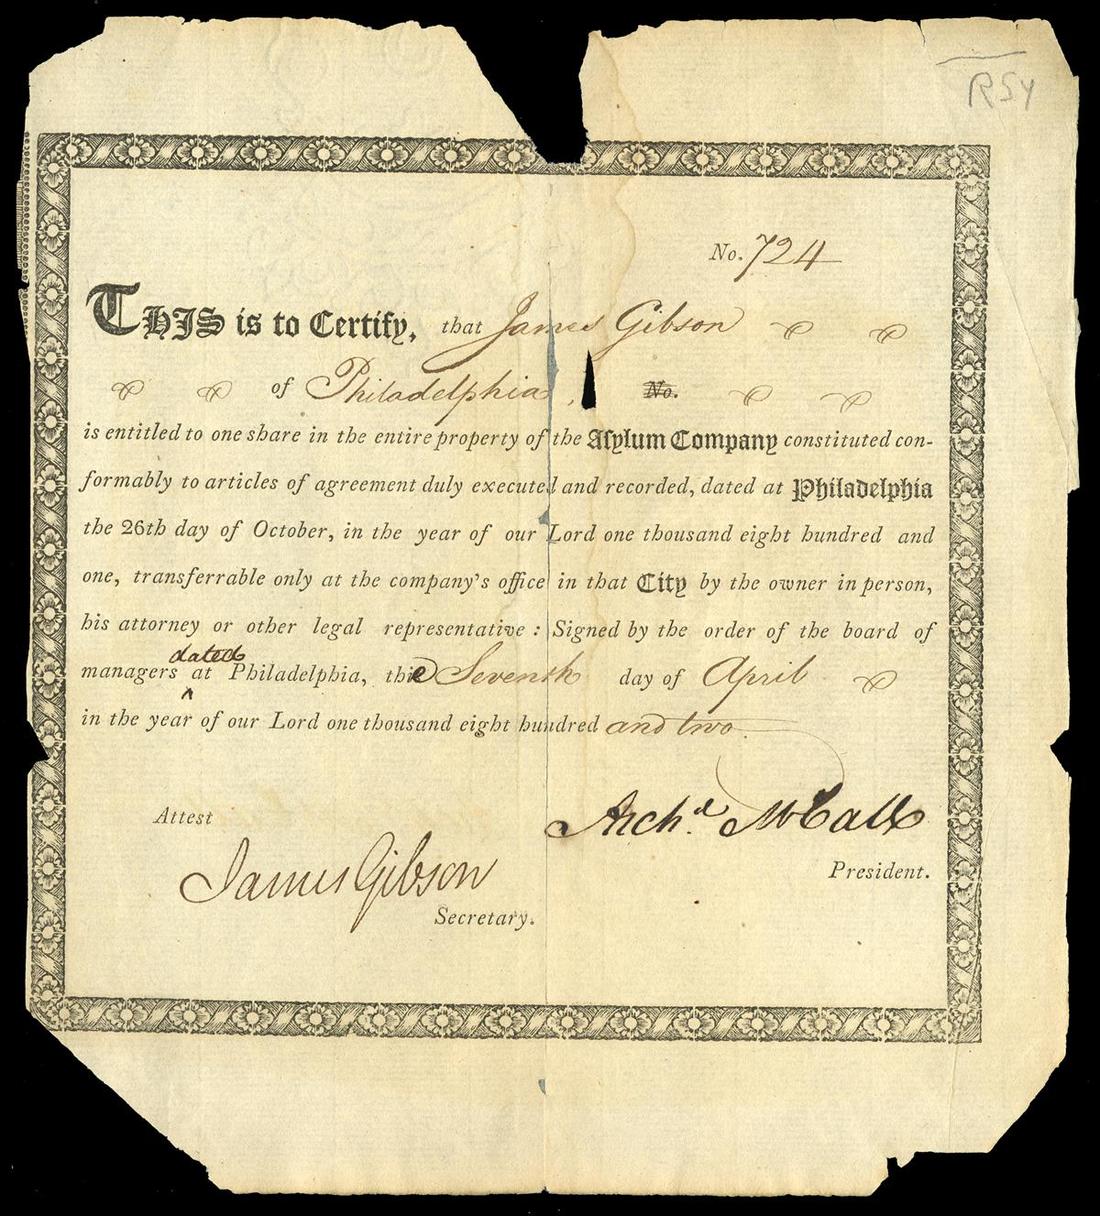 RSY
No. 724
THIS is to Certify, that James Gibson
of Philadelphia, No.
is entitled to one share in the entire property of the Asylum Company constituted con-
formably to articles of agreement duly executed and recorded, dated at Philadelphia
the 26th day of October, in the year of our Lord one thousand eight hundred and
one, transferrable only at the company's office in that City by the owner in person,
his attorney or other legal representative: Signed by the order of the board of
dated
managers at Philadelphia, the Seventh day of April
in the year of our Lord one thousand eight hundred and two.
Attest
Archd. McCall
President.
James Gibson
Secretary.